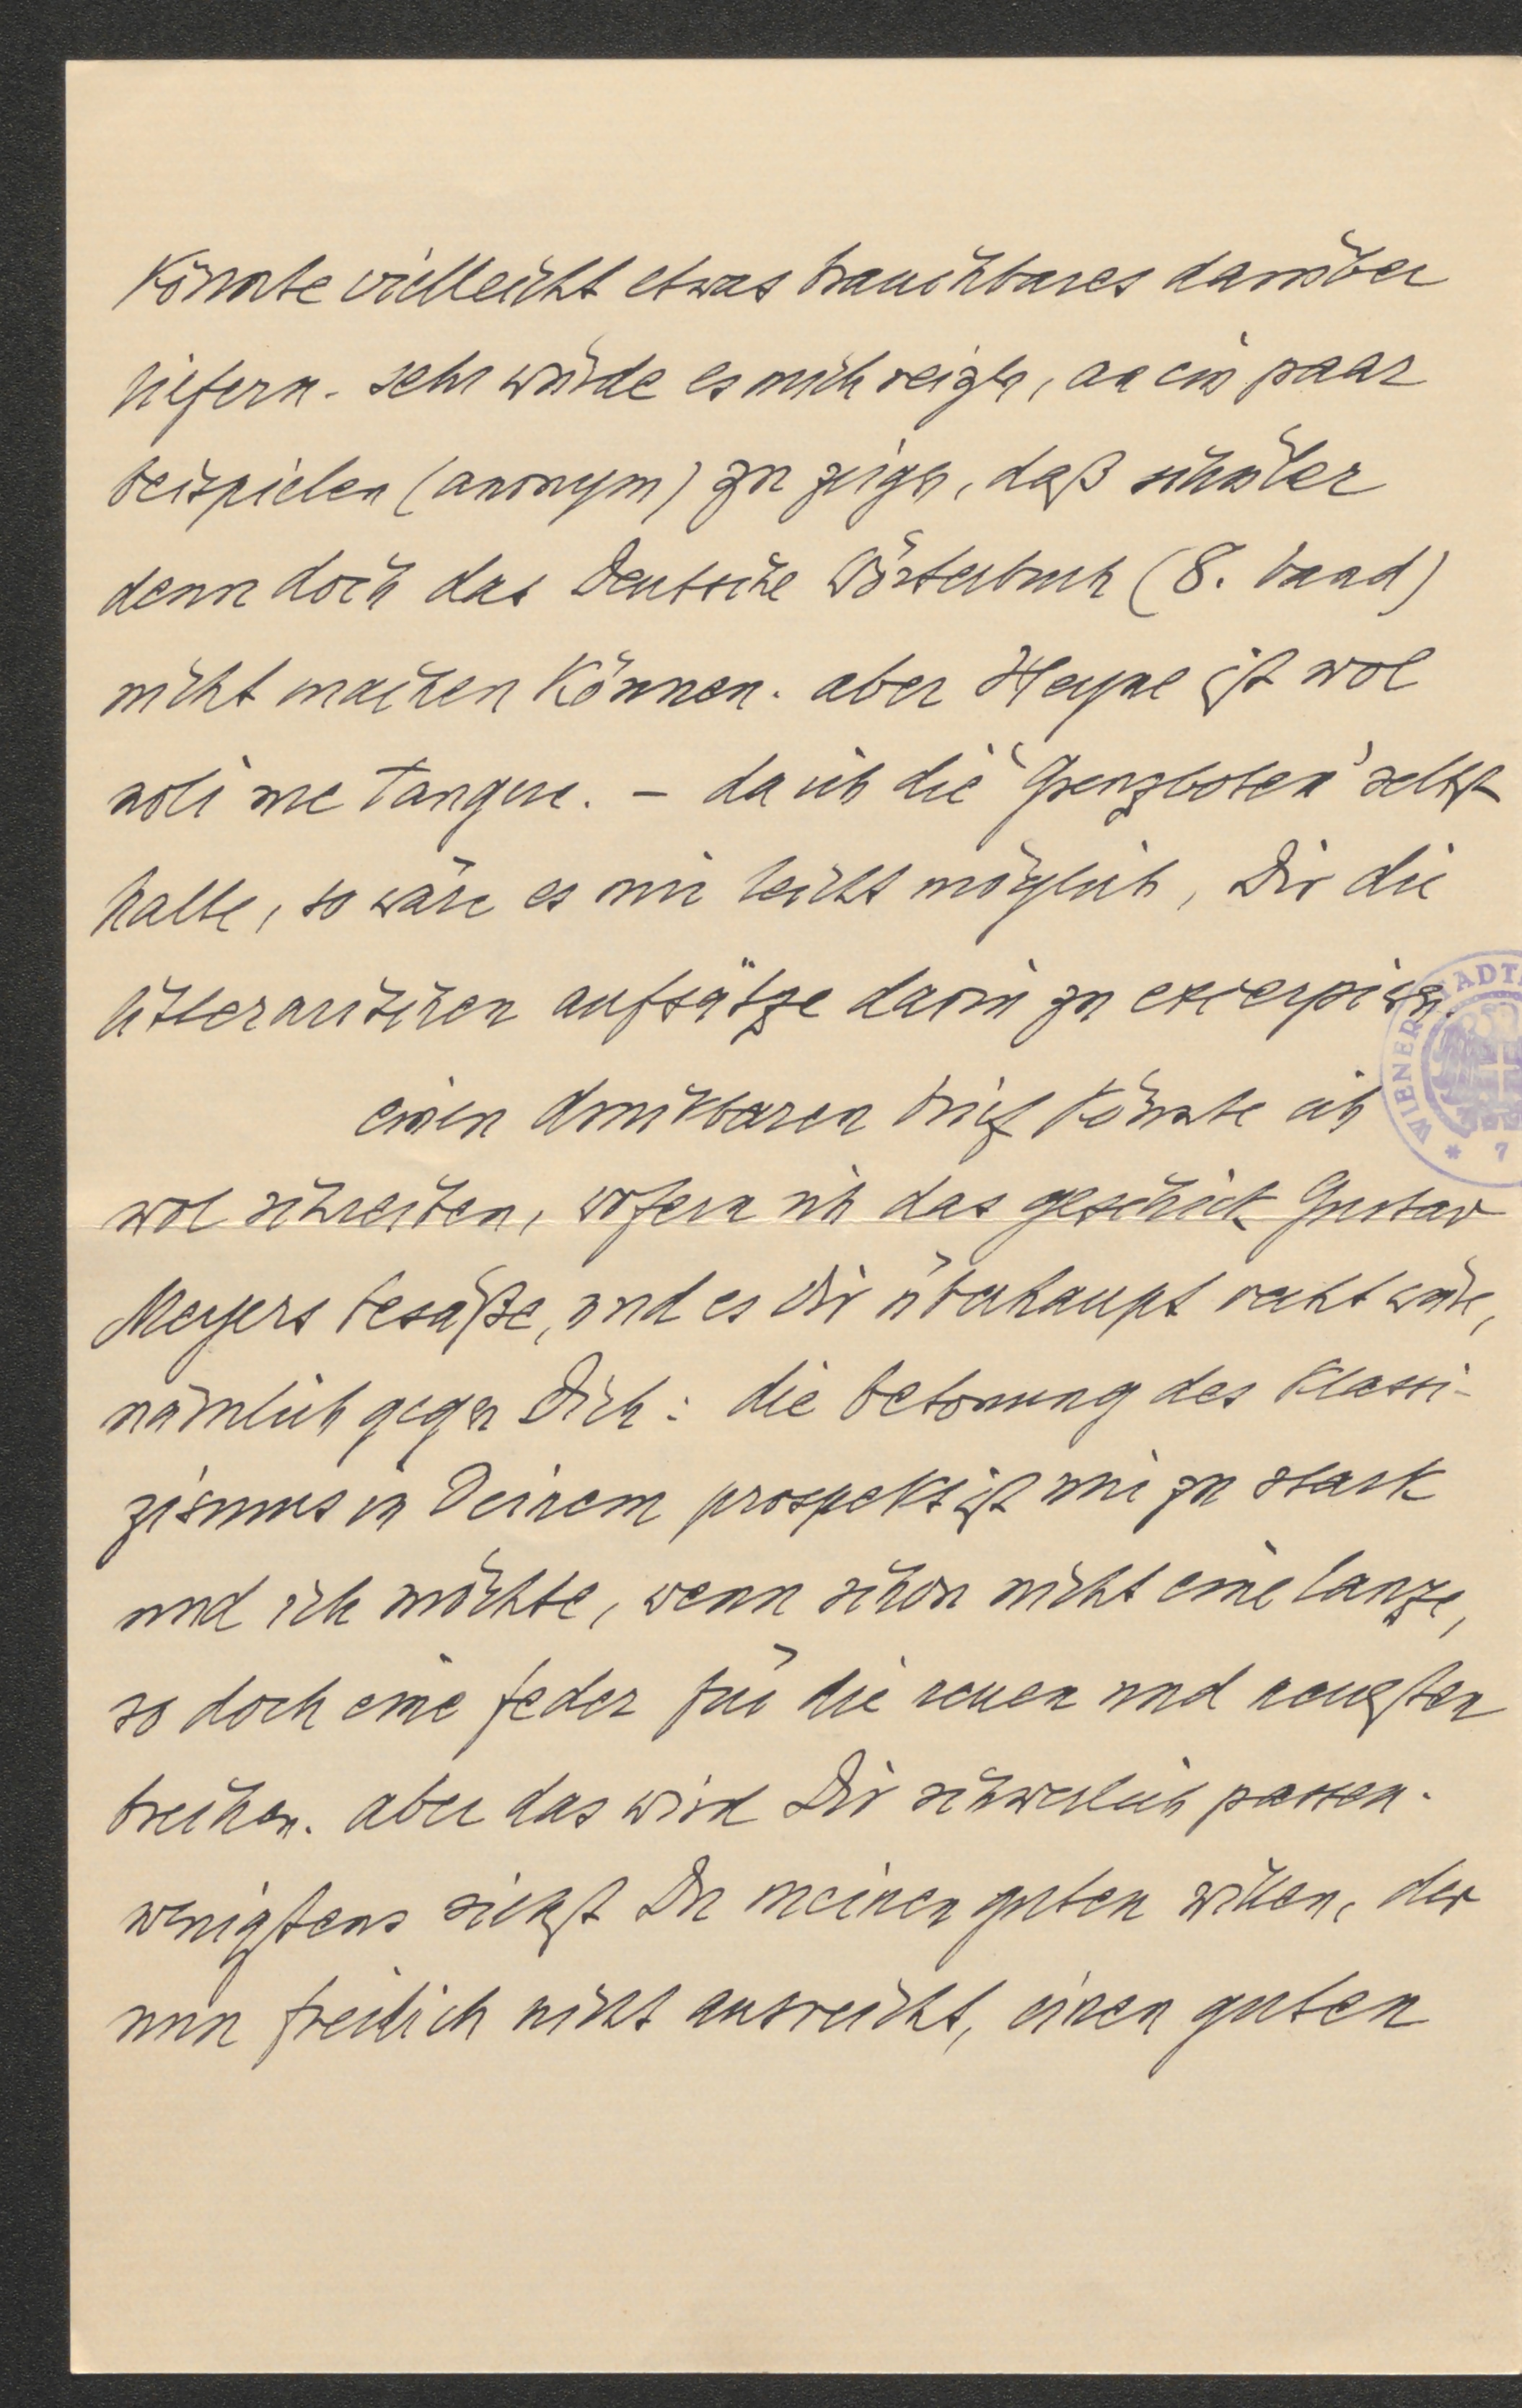 könnte vielleicht etwas brauchbares darüber
liefern. sehr würde es mich reizen, an ein paar
beispielen (anonym) zu zeigen, daß schüler
denn doch das Deutsche Wörterbuch (8. band)
nicht machen können. aber Heyne ist wol
noli me tangere. – da ich die 'Grenzboten' selbst
halte, so wäre es mir leicht möglich, Dir die
litterarischen aufsätze darin zu excerpiren.
einen druckbaren brief könnte ich
wol schreiben, wofern ich das geschick Gustav
Meyers besäße, und es Dir überhaupt recht wäre,
nämlich gegen Dich: die betonung des klassi-
zismus in Deinem prospekt ist mir zu stark
und ich möchte, wenn schon nicht eine lanze,
so doch eine feder für die neuen und neuesten
brechen. aber das wird Dir schwerlich passen.
wenigstens siehst Du meinen guten willen, der
nun freilich nicht ausreicht, einen guten
WIENER STADT
* 7